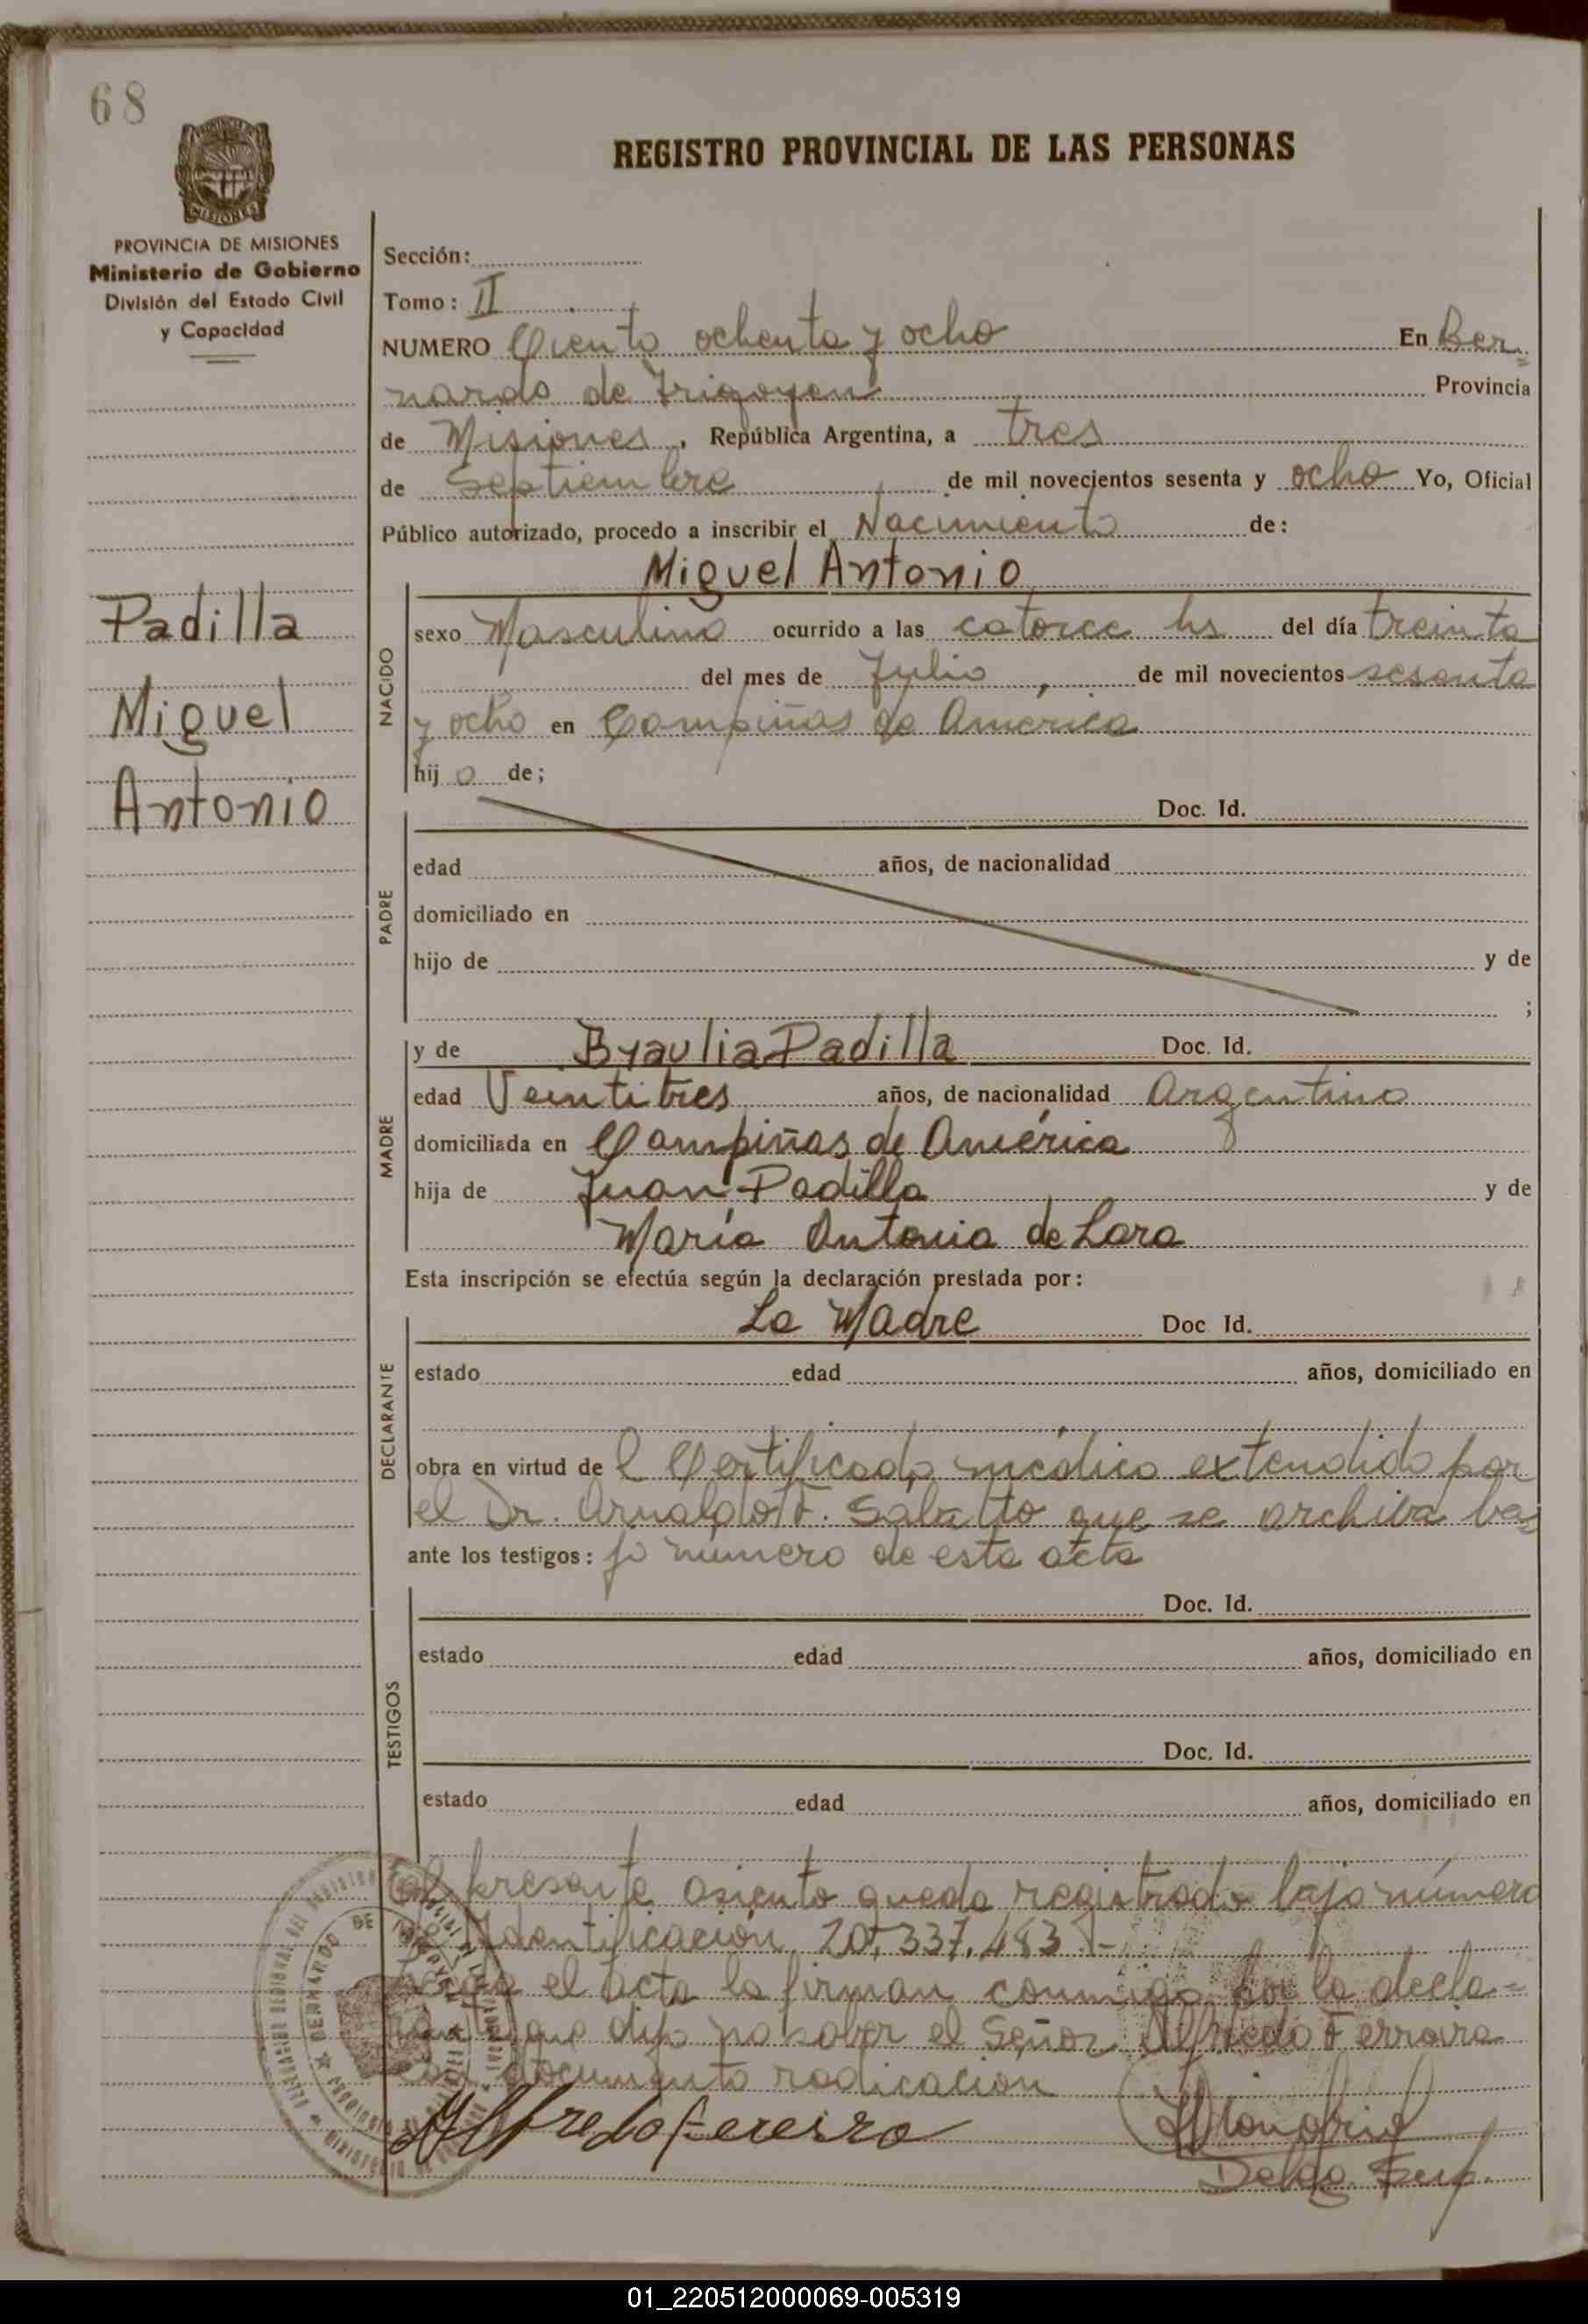 68
REGISTRO PROVINCIAL DE LAS PERSONAS
PROVINCIA DE MISIONES
Ministerio de Gobierno
División del Estado Civil
y Capacidad
Padilla
Miguel
Antonio
Sección:
Tomo: II
NUMERO Ciento ochenta y ocho En Ber=
nardo de Irigoyen Provincia
de Misiones, República Argentina, a tres
de Septiembre de mil novecientos sesenta y ocho Yo, Oficial
Público autorizado, procedo a inscribir el Nacimiento de:
Miguel Antonio
NACIDO
sexo Masculino ocurrido a las catorce hs del día treinta
del mes de Julio, de mil novecientos sesenta
y ocho en Campiñas de América
hijo de;
PADRE
Doc. Id.
edad años, de nacionalidad
domiciliado en
hijo de y de
;
MADRE
y de Braulia Padilla Doc. Id.
edad Veintitres años, de nacionalidad Argentina
domiciliada en Campiñas de América
hija de Juan Padilla y de
María Antonia de Lara
Esta inscripción se efectúa según la declaración prestada por:
DECLARANTE
La Madre Doc Id.
estado edad años, domiciliado en
obra en virtud de l Certificado médico extendido por
el Dr. Arnaldo F. Sabatto que se archiva ba=
ante los testigos: jo número de esta acta
TESTIGOS
Doc. Id.
estado edad años, domiciliado en
Doc. Id.
estado edad años, domiciliado en
El presente asiento queda registrado bajo número
de Identificación 20.337.483.-
el acta la firman conmigo por la decla=
rante que dijo no saber el Señor Alfredo Ferreira
con documento radicación
Alfredo Fereira
BERNARDO DE IRIGOYEN
01_220512000069-005319